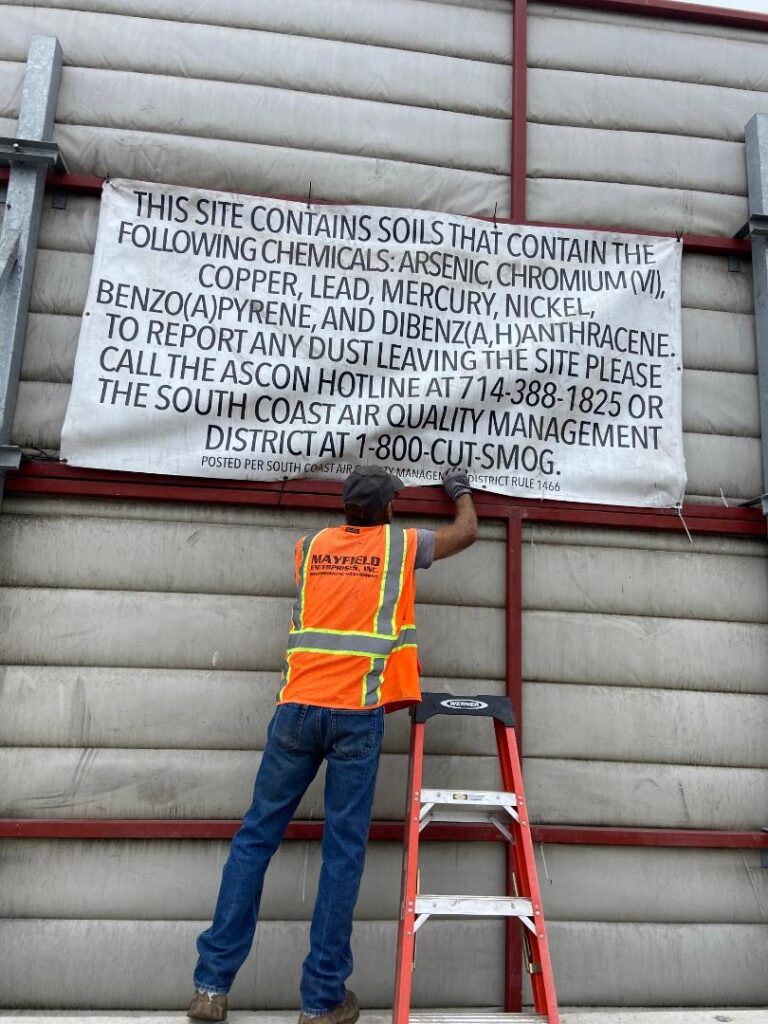 THIS SITE CONTAINS SOILS THAT CONTAIN THE
FOLLOWING CHEMICALS: ARSENIC, CHROMIUM (VI),
COPPER, LEAD, MERCURY, NICKEL,
BENZO(A)PYRENE, AND DIBENZ(A,H)ANTHRACENE.
TO REPORT ANY DUST LEAVING THE SITE PLEASE
CALL THE ASCON HOTLINE AT 714-388-1825 OR
THE SOUTH COAST AIR QUALITY MANAGEMENT
DISTRICT AT 1-800-CUT-SMOG.
POSTED PER SOUTH COAST AIR QUALITY MANAGEMENT DISTRICT RULE 1466
MAYFIELD
ENTERPRISES, INC.
WERNER